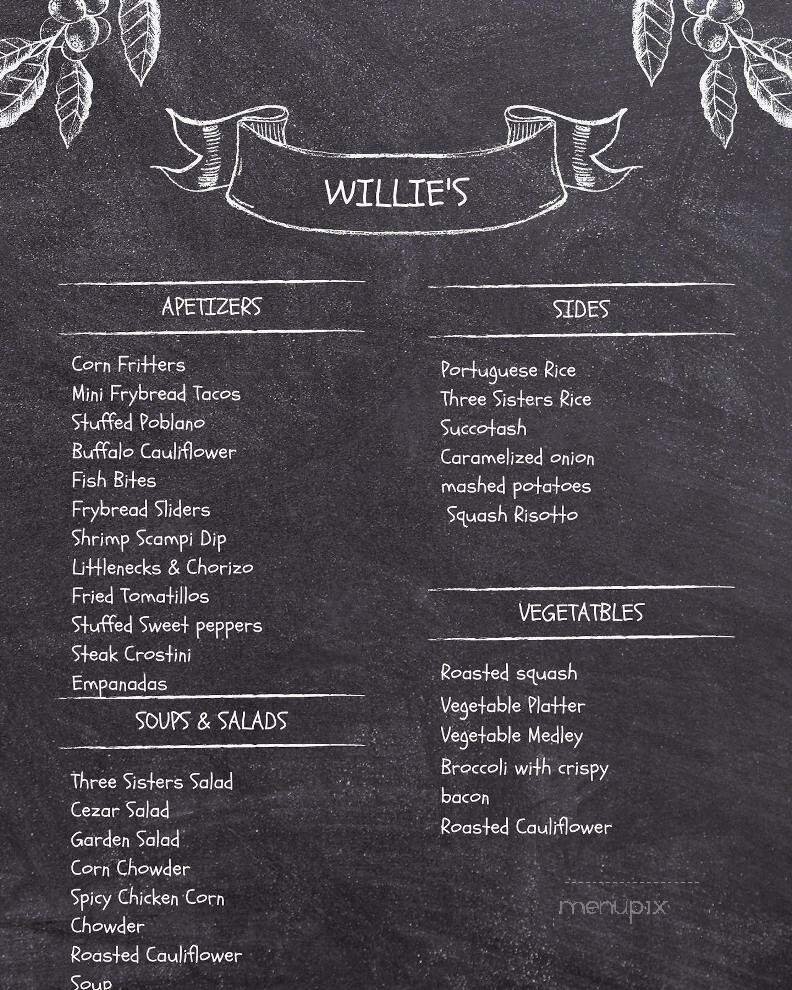 WILLIE'S
APETIZERS
Corn Fritters
Mini Frybread Tacos
Stuffed Poblano
Buffalo Cauliflower
Fish Bites
Frybread Sliders
Shrimp Scampi Dip
Littlenecks & Chorizo
Fried Tomatillos
Stuffed Sweet peppers
Steak Crostini
Empanadas
SOUPS & SALADS
Three Sisters Salad
Cezar Salad
Garden Salad
Corn Chowder
Spicy Chicken Corn
Chowder
Roasted Cauliflower
Soup
SIDES
Portuguese Rice
Three Sisters Rice
Succotash
Caramelized onion
mashed potatoes
Squash Risotto
VEGETATBLES
Roasted squash
Vegetable Platter
Vegetable Medley
Broccoli with crispy
bacon
Roasted Cauliflower
menupix